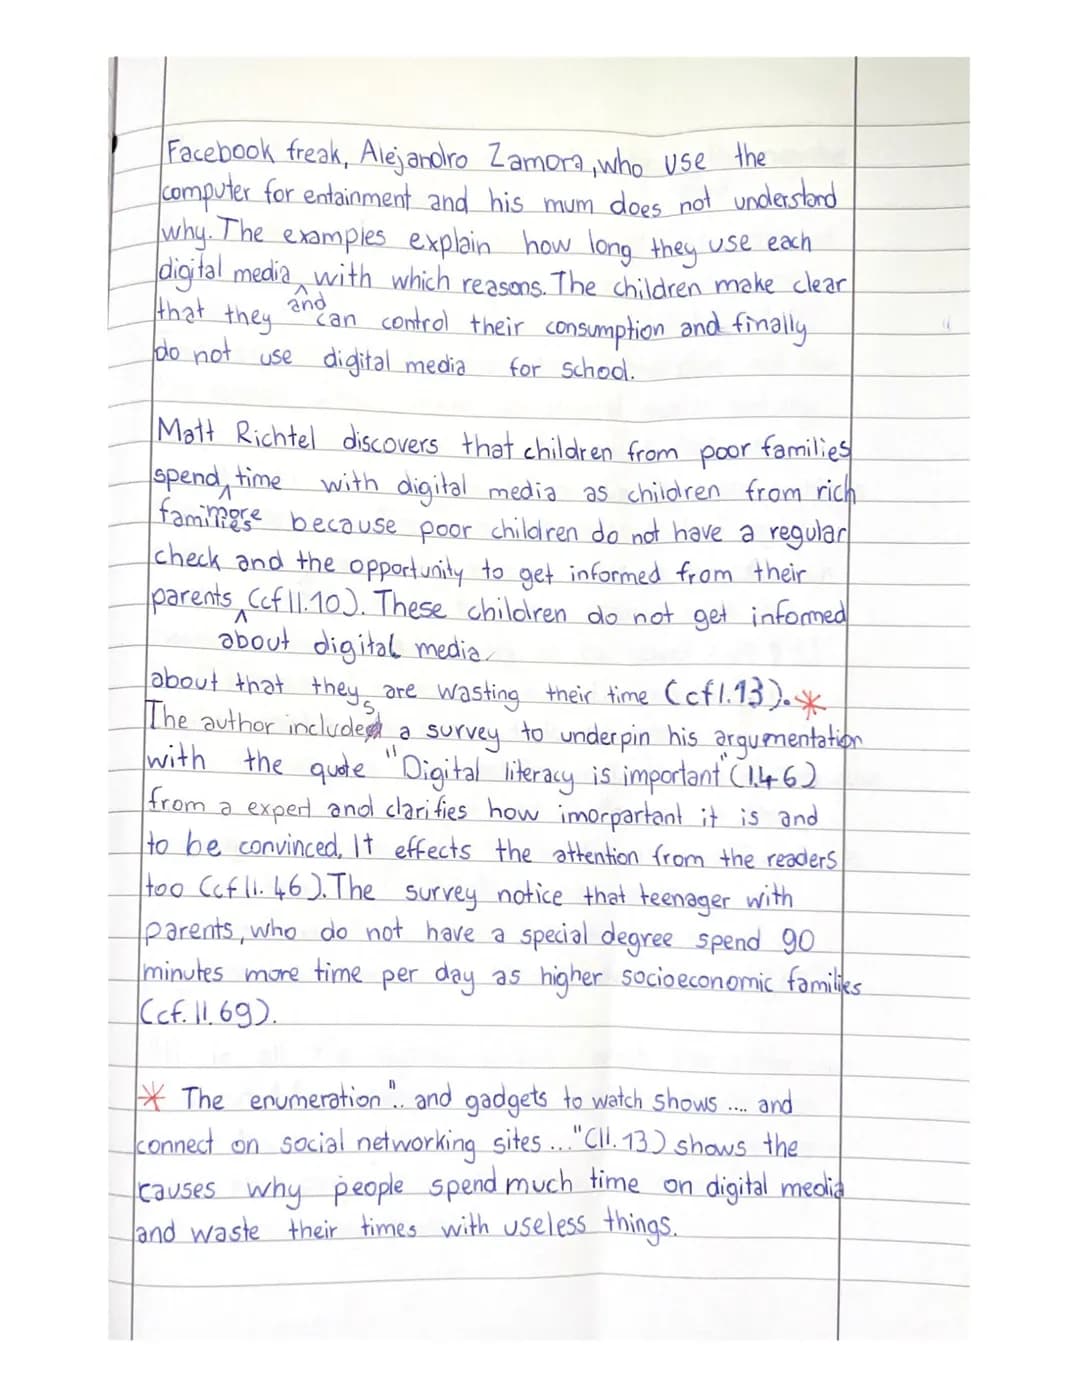 Facebook freak, Alejandro Zamora, who use the
computer for entainment and his mum does not understand
why. The examples explain how long they use each
digital media with which reasons. The children make clear
and
that they can control their consumption and finally
do not use digital media for school.
Matt Richtel discovers that children from poor families
spend time with digital media as children from rich
more
families because poor children do not have a regular
check and the opportunity to get informed from their
parents (cf ll.10). These children do not get informed
about digital media
about that they are wasting their time (cf l.13). *
The author includes a survey to underpin his argumentation
with the quote "Digital literacy is important" (l.46)
from a expert and clarifies how imorpartant it is and
to be convinced. It effects the attention from the readers
too (cf ll. 46). The survey notice that teenager with
parents, who do not have a special degree spend 90
minutes more time per day as higher socioeconomic families
(cf. ll. 69).
* The enumeration ".. and gadgets to watch shows .... and
connect on social networking sites ..." (ll. 13) shows the
causes why people spend much time on digital media
and waste their times with useless things.